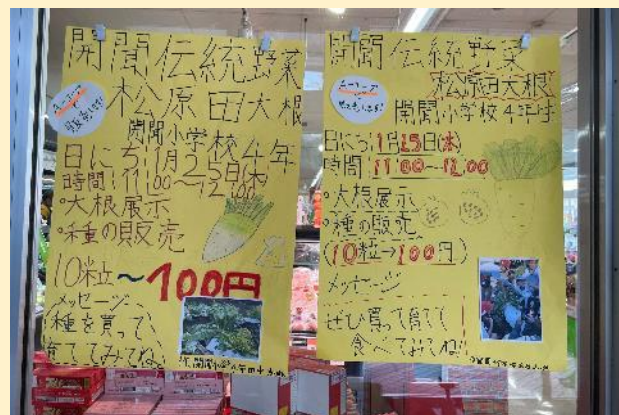 開聞伝統野菜
松原田大根
販売します!
開聞小学校4年
日にち1月25日(木)
時間:11:00〜12:00
・大根展示
・種の販売
10粒〜100円
メッセージ、
種を買って、
育ててみてね!
開聞伝統野菜
松原田大根
販売します!
開聞小学校4年は
日にち:1月25日(木)
時間:11:00〜12:00
・大根展示
・種の販売
(10粒→100円)
メッセージ
ぜひ買って育てて
食べてみてね!!